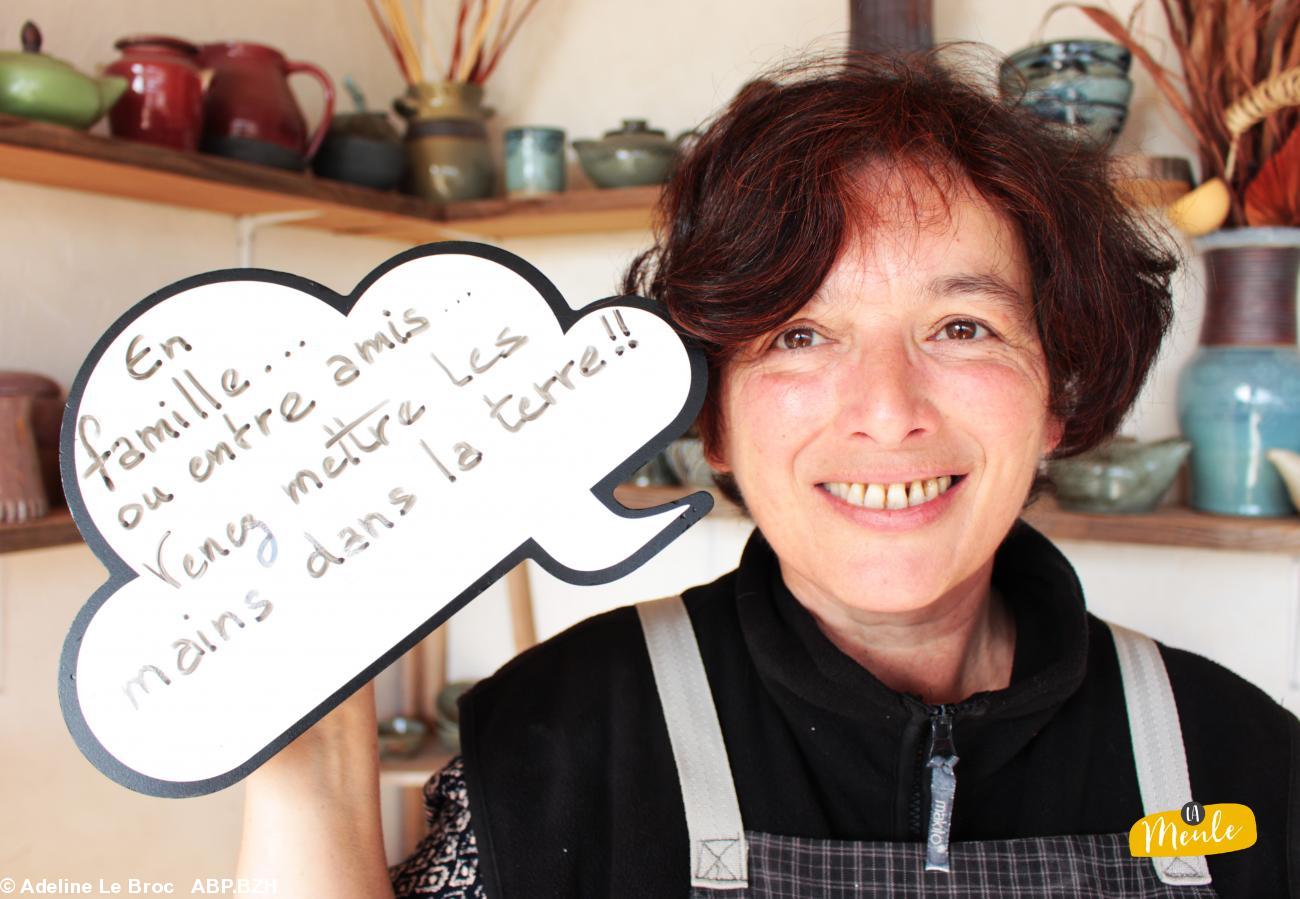 En
famille...
ou entre amis...
Venez mettre les
mains dans la terre!!
makito
LA
Meule
© Adeline Le Broc ABP.BZH